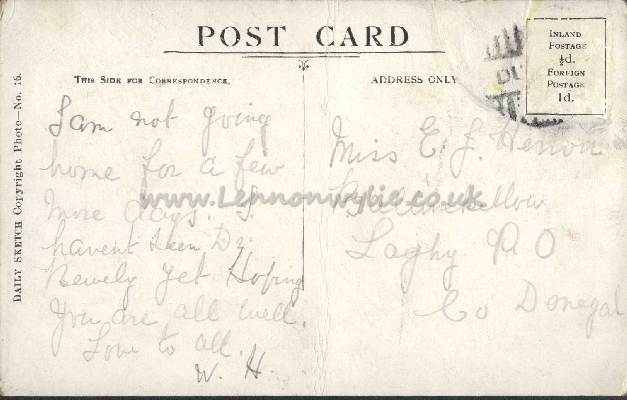 POST CARD
THIS SIDE FOR CORRESPONDENCE.
ADDRESS ONLY
INLAND
POSTAGE
½d.
FOREIGN
POSTAGE
1d.
DAILY SKETCH Copyright Photo—No. 15.
I am not going
home for a few
more days. I
havent seen Dr.
Bewely yet. Hoping
you are all well.
Love to all.
W. H.
Miss E. J. Herron
Laghy P.O
Co Donegal
www.Lennonwylie.co.uk